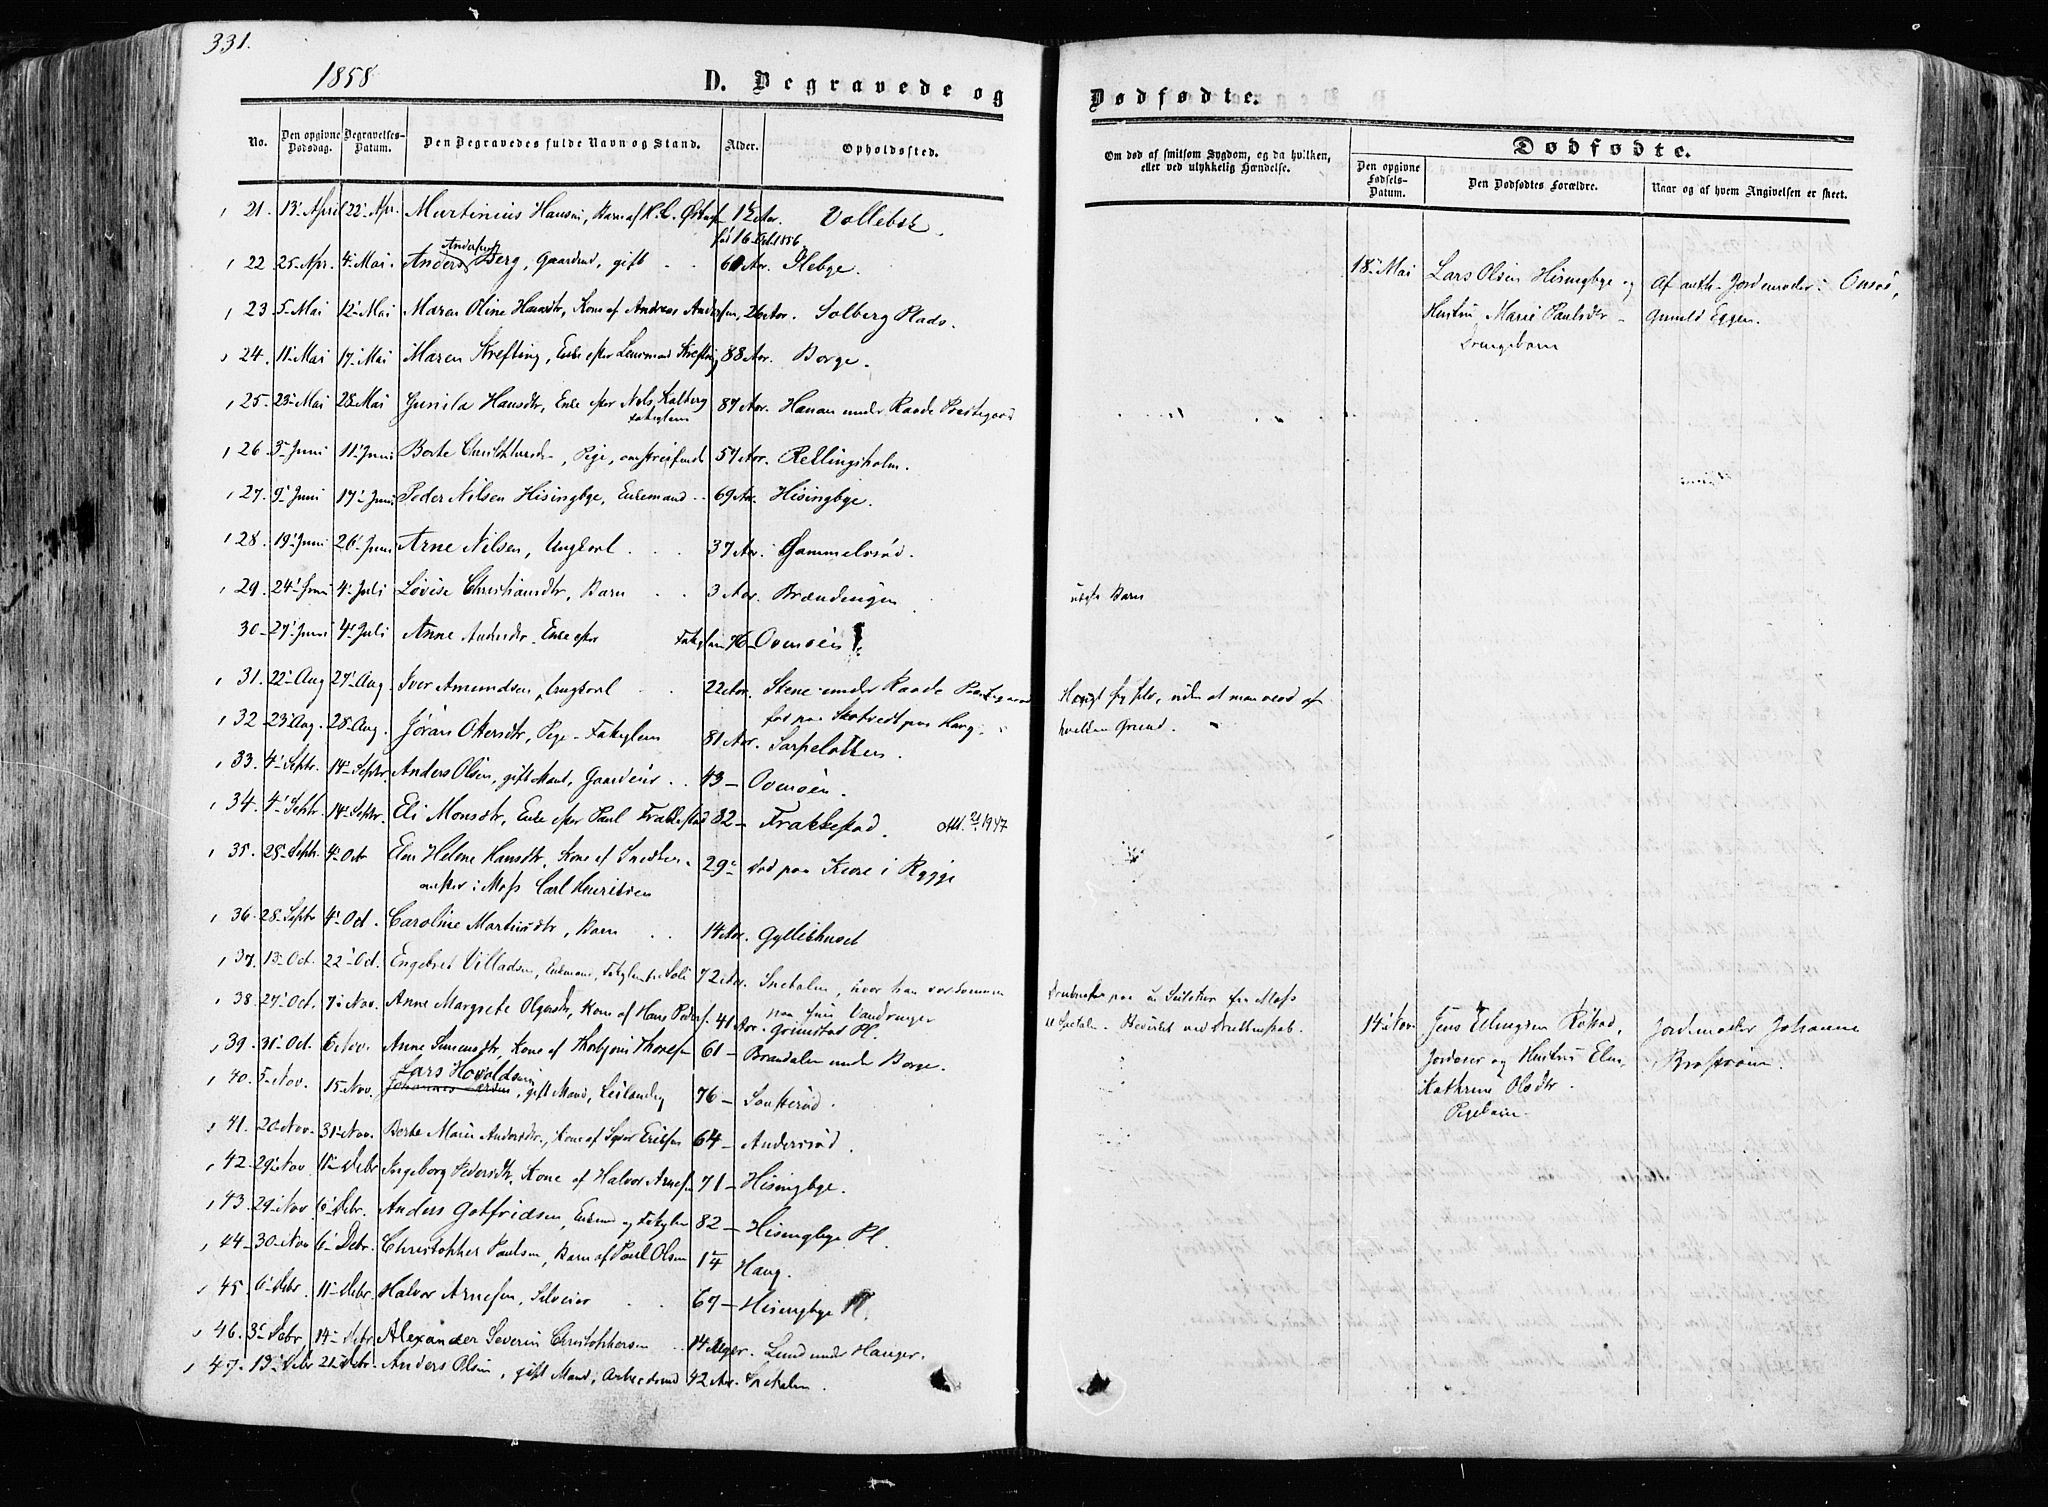 331.
1858
D. Begravede og
Dødfødte.
No.
Den opgivne Dødsdag.
Begravelses-Datum.
Den Begravedes fulde Navn og Stand.
Alder.
Opholdssted.
Om død af smitsom Sygdom, og da hvilken, eller ved ulykkelig Hændelse.
Dødfødte.
Den opgivne Fødsels-Datum.
Den Dødfødtes Forældre.
Naar og af hvem Angivelsen er skeet.
21. 13 April 22 Apr. Martinius Hansen, Barn af Vollebek.
født 16 Oct 1856
Anderssen
22 25 Apr. 4 Mai. Anders Berg, Gaardmd, gift 60 Aar. Ilebye.
23 5 Mai 12 Mai Maren Oline Hansdtr, Kone af Andreas Andersen, 26 Aar. Solberg Plads.
24. 11 Mai 17 Mai Maren Krefting, Enke efter Lensmand Krefting 88 Aar. Borge.
25. 23 Mai 28 Mai Gunila Hansdtr, Enke efter Nils Kalberg 87 Aar. Hanan under Raade Prestegaard
Fatiglem
26 3 Juni 11 Juni Berte Christensdtr, Pige, omstreifende 57 Aar. Rellingsholm.
27. 9 Juni 17 Juni Peder Nilsen Hisingbye, Enkemand 69 Aar. Hisingbye.
28. 19 Juni 26 Juni Arne Nilsen, Ungkarl 37 Aar. Gammelsrød.
29. 24 Juni 4 Juli Lovise Christiansdtr, Barn 3 Aar. Brændingen
uægte Barn
30 27 Juni 4 Juli Anne Andersdtr Enke efter Fatiglem 76 Ovenøien
31. 22 Aug 27 Aug. Iver Amundsen, Ungkarl 22 Aar. Stene under Raade Prestegaard
32 23 Aug. 28 Aug. Jøran Ottersdtr, Pige - Fatiglem 81 Aar. Sarpeløkken.
hvilken Grund.
33. 4 Septr. 14 Septr. Anders Olsen, gift Mand, Gaardeier 43 Ovenøien.
34. 4 Septr 14 Septr. Eli Monsdtr, Enke efter Paul Frakkestad 82 Frakkestad. Att. 1947
35. 28 Septr. 4 Oct Elen Helene Hansdtr, Kone af Snedker 29 død paa Kure i Rygge
i Moss Carl Henriksen
36. 28 Septr 4 Oct. Caroline Martinsdtr, Barn 14 Aar. Gyllishuset
37. 13 Oct. 22 Oct. Engebret Villadsen, Enkemand, Fatiglem 72 Aar. Spetalen, hvor han var kommen
paa sine Vandringer
38. 27 Oct. 7 Nov. Anne Margrete Olsdtr, Kone af Hans Peders. 41 Aar. Grimstad Pl.
39. 31 Oct. 6 Nov. Anne Simensdtr, Kone af Thorbjørn Thoresen 61 Brandalen under Borge.
Lars Hovaldsen
40. 5 Nov. 15 Nov. gift Mand, Leilænding 76 Sonsterød.
41. 20 Nov. 31 Nov. Berte Marie Andersdtr., Kone af Syver Ericksen 64 Andersrød.
42. 29 Nov. 11 Debr Ingeborg Pedersdtr, Kone af Halvor Arnesen 71 Hisingbye.
43. 29 Nov 6 Debr. Anders Gotfridsen, Enkemd og Fatiglem 82 Hisingbye Pl.
44 30 Nov 6 Debr. Christopher Paulsen, Barn af Paul Olsen Haug.
45. 6 Debr. 11 Debr Halvor Arnesen, Selveier 67 Hisingbye Pl.
46. 3 Debr 14 Debr Alexander Severin Christophersen 14 Uger. Lund under Hauger.
47. 13 Debr 21 Debr. Anders Olsen, gift Mand, Arbeidsmd 42 Aar. Spetalen.
18 Mai Lars Olsen Hisingbye og
Hustru Marie Paulsdtr
Drengebarn
Af auth. Jordemoder i Onsø,
Gunild Eggen.
14 Nov. Jens Ellingsen Røstad,
Jordeier og Hustru Elen
Kathrine Olsdtr.
Pigebarn.
Jordemoder Johanne
Brostrøm.